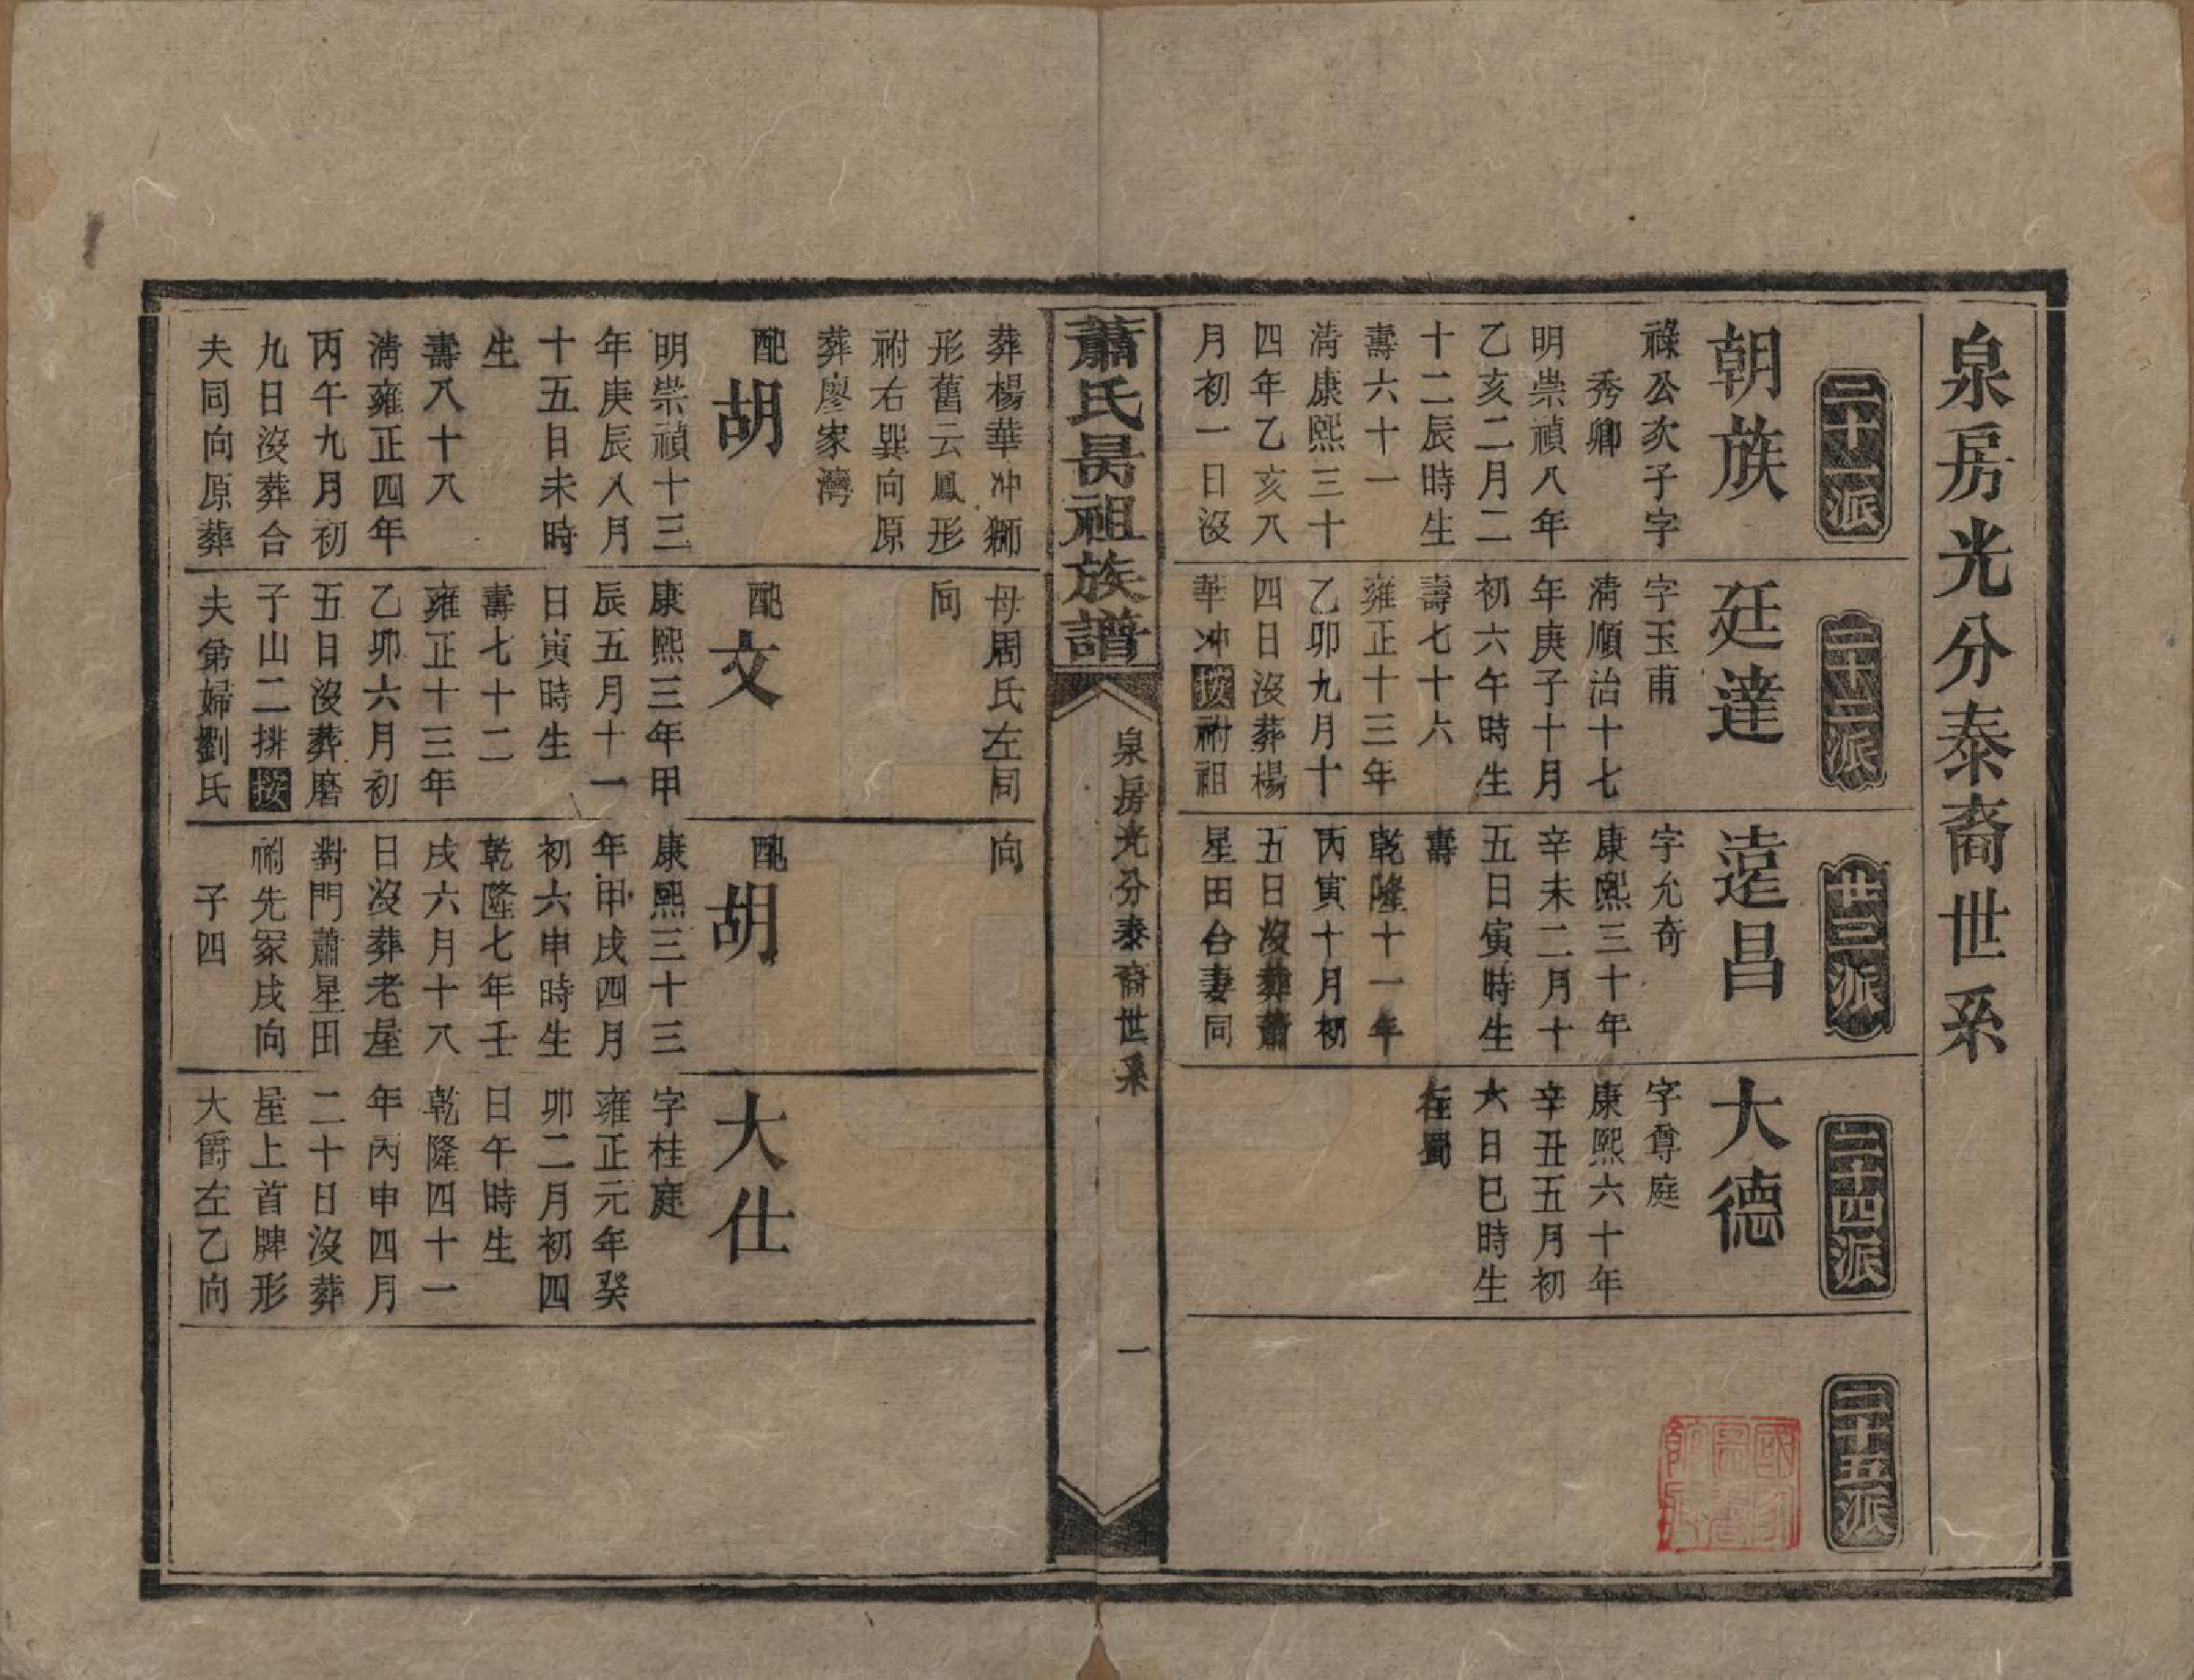 泉房光分泰裔世系
二十一派
朝族
祿公次子字
秀卿
明崇禎八年
乙亥二月二
十二辰時生
壽六十一
清康熙三十
四年乙亥八
月初一日沒
二十二派
廷達
字玉甫
清順治十七
年庚子十月
初六午時生
壽七十六
雍正十三年
乙卯九月十
四日沒葬楊
華冲按祔祖
廿三派
遠昌
字允奇
康熙三十年
辛未二月十
五日寅時生
壽
乾隆十一年
丙寅十月初
五日沒葬蕭
星田台妻同
二十四派
大德
字尊庭
康熙六十年
辛丑五月初
六日巳時生
在蜀
二十五派
蕭氏昺祖族譜
泉房光分泰裔世系
一
葬楊華冲獅
形舊云鳳形
祔右巽向原
葬廖家灣
配
胡
明崇禎十三
年庚辰八月
十五日未時
生
壽八十八
清雍正四年
丙午九月初
九日沒葬合
夫同向原葬
母周氏左同
向
配
文
康熙三年甲
辰五月十一
日寅時生
壽七十二
雍正十三年
乙卯六月初
五日沒葬磨
子山二排按
夫弟婦劉氏
向
配
胡
康熙三十三
年甲戌四月
初六申時生
乾隆七年壬
戌六月十八
日沒葬老屋
對門蕭星田
祔先冢戌向
子四
大仕
字桂庭
雍正元年癸
卯二月初四
日午時生
乾隆四十一
年丙申四月
二十日沒葬
屋上首牌形
大爵左乙向